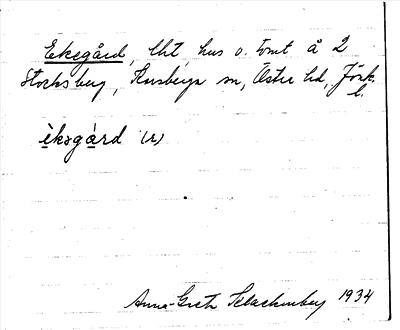 Ekegård, lht, hus o. tomt å 2
Stocksberg, Rusberga sn, Östra hd, Jönk.
l.
èksgàrd (r)
Anna-Greta Klackenberg 1934